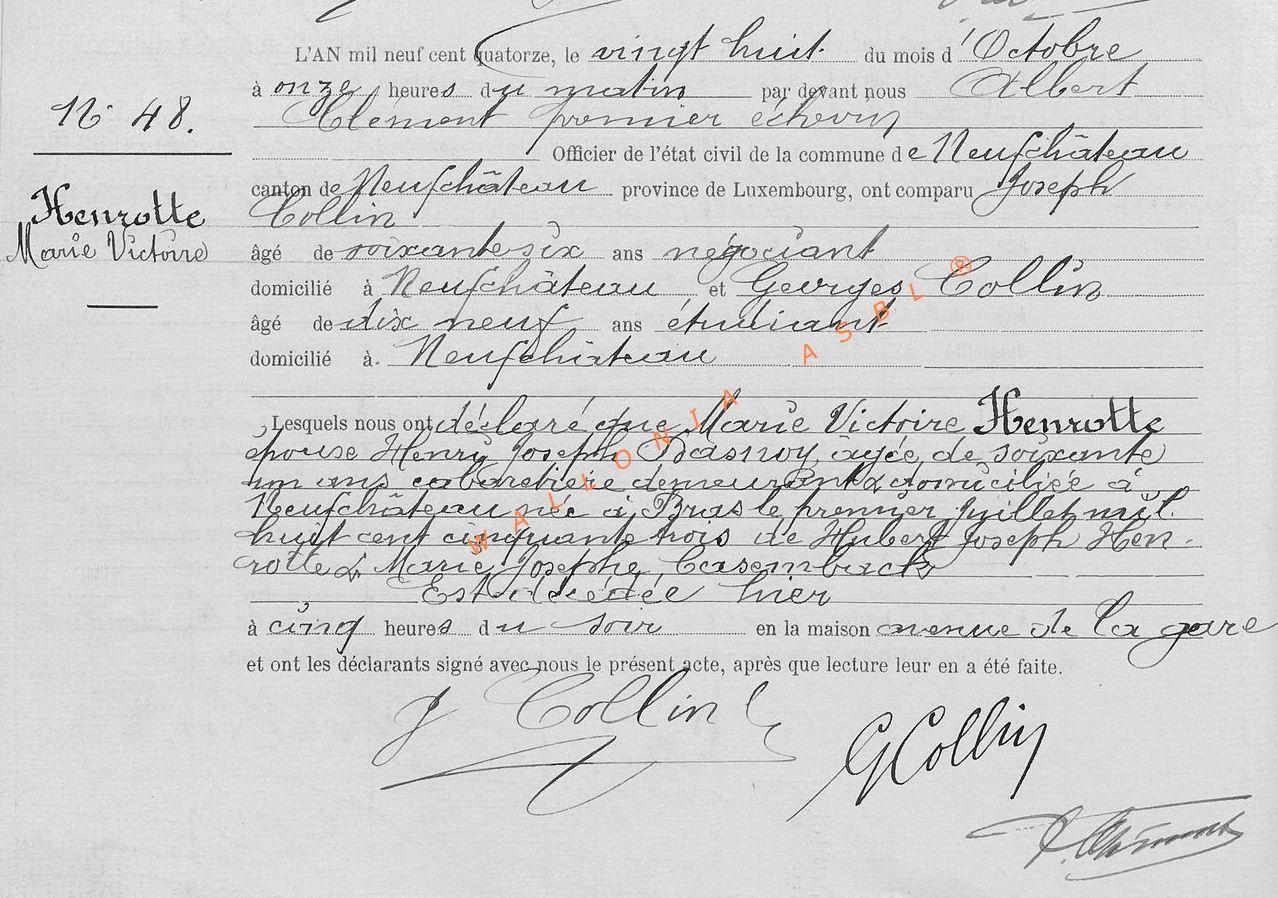 L'AN mil neuf cent quatorze, le vingt huit du mois d'Octobre
à onze heures du matin par devant nous Albert
Clément premier échevin
Officier de l'état civil de la commune de Neufchâteau
canton de Neufchâteau province de Luxembourg, ont comparu Joseph
Collin
âgé de soixante six ans négociant
domicilié à Neufchâteau et Georges Collin
âgé de dix neuf ans étudiant
domicilié à Neufchâteau
N° 48.
Henrotte
Marie Victoire
Lesquels nous ont déclaré que Marie Victoire Henrotte
épouse Henry Joseph âgée de soixante
un ans cabaretière demeurant & domiciliée à
Neufchâteau née à Bras le premier Juillet mil
huit cent cinquante trois de Hubert Joseph Hen-
rotte & Marie Josephe
Est décédée hier
à cinq heures du soir en la maison avenue de la gare
et ont les déclarants signé avec nous le présent acte, après que lecture leur en a été faite.
J Collin
G Collin
WALLONIA ASBL ®